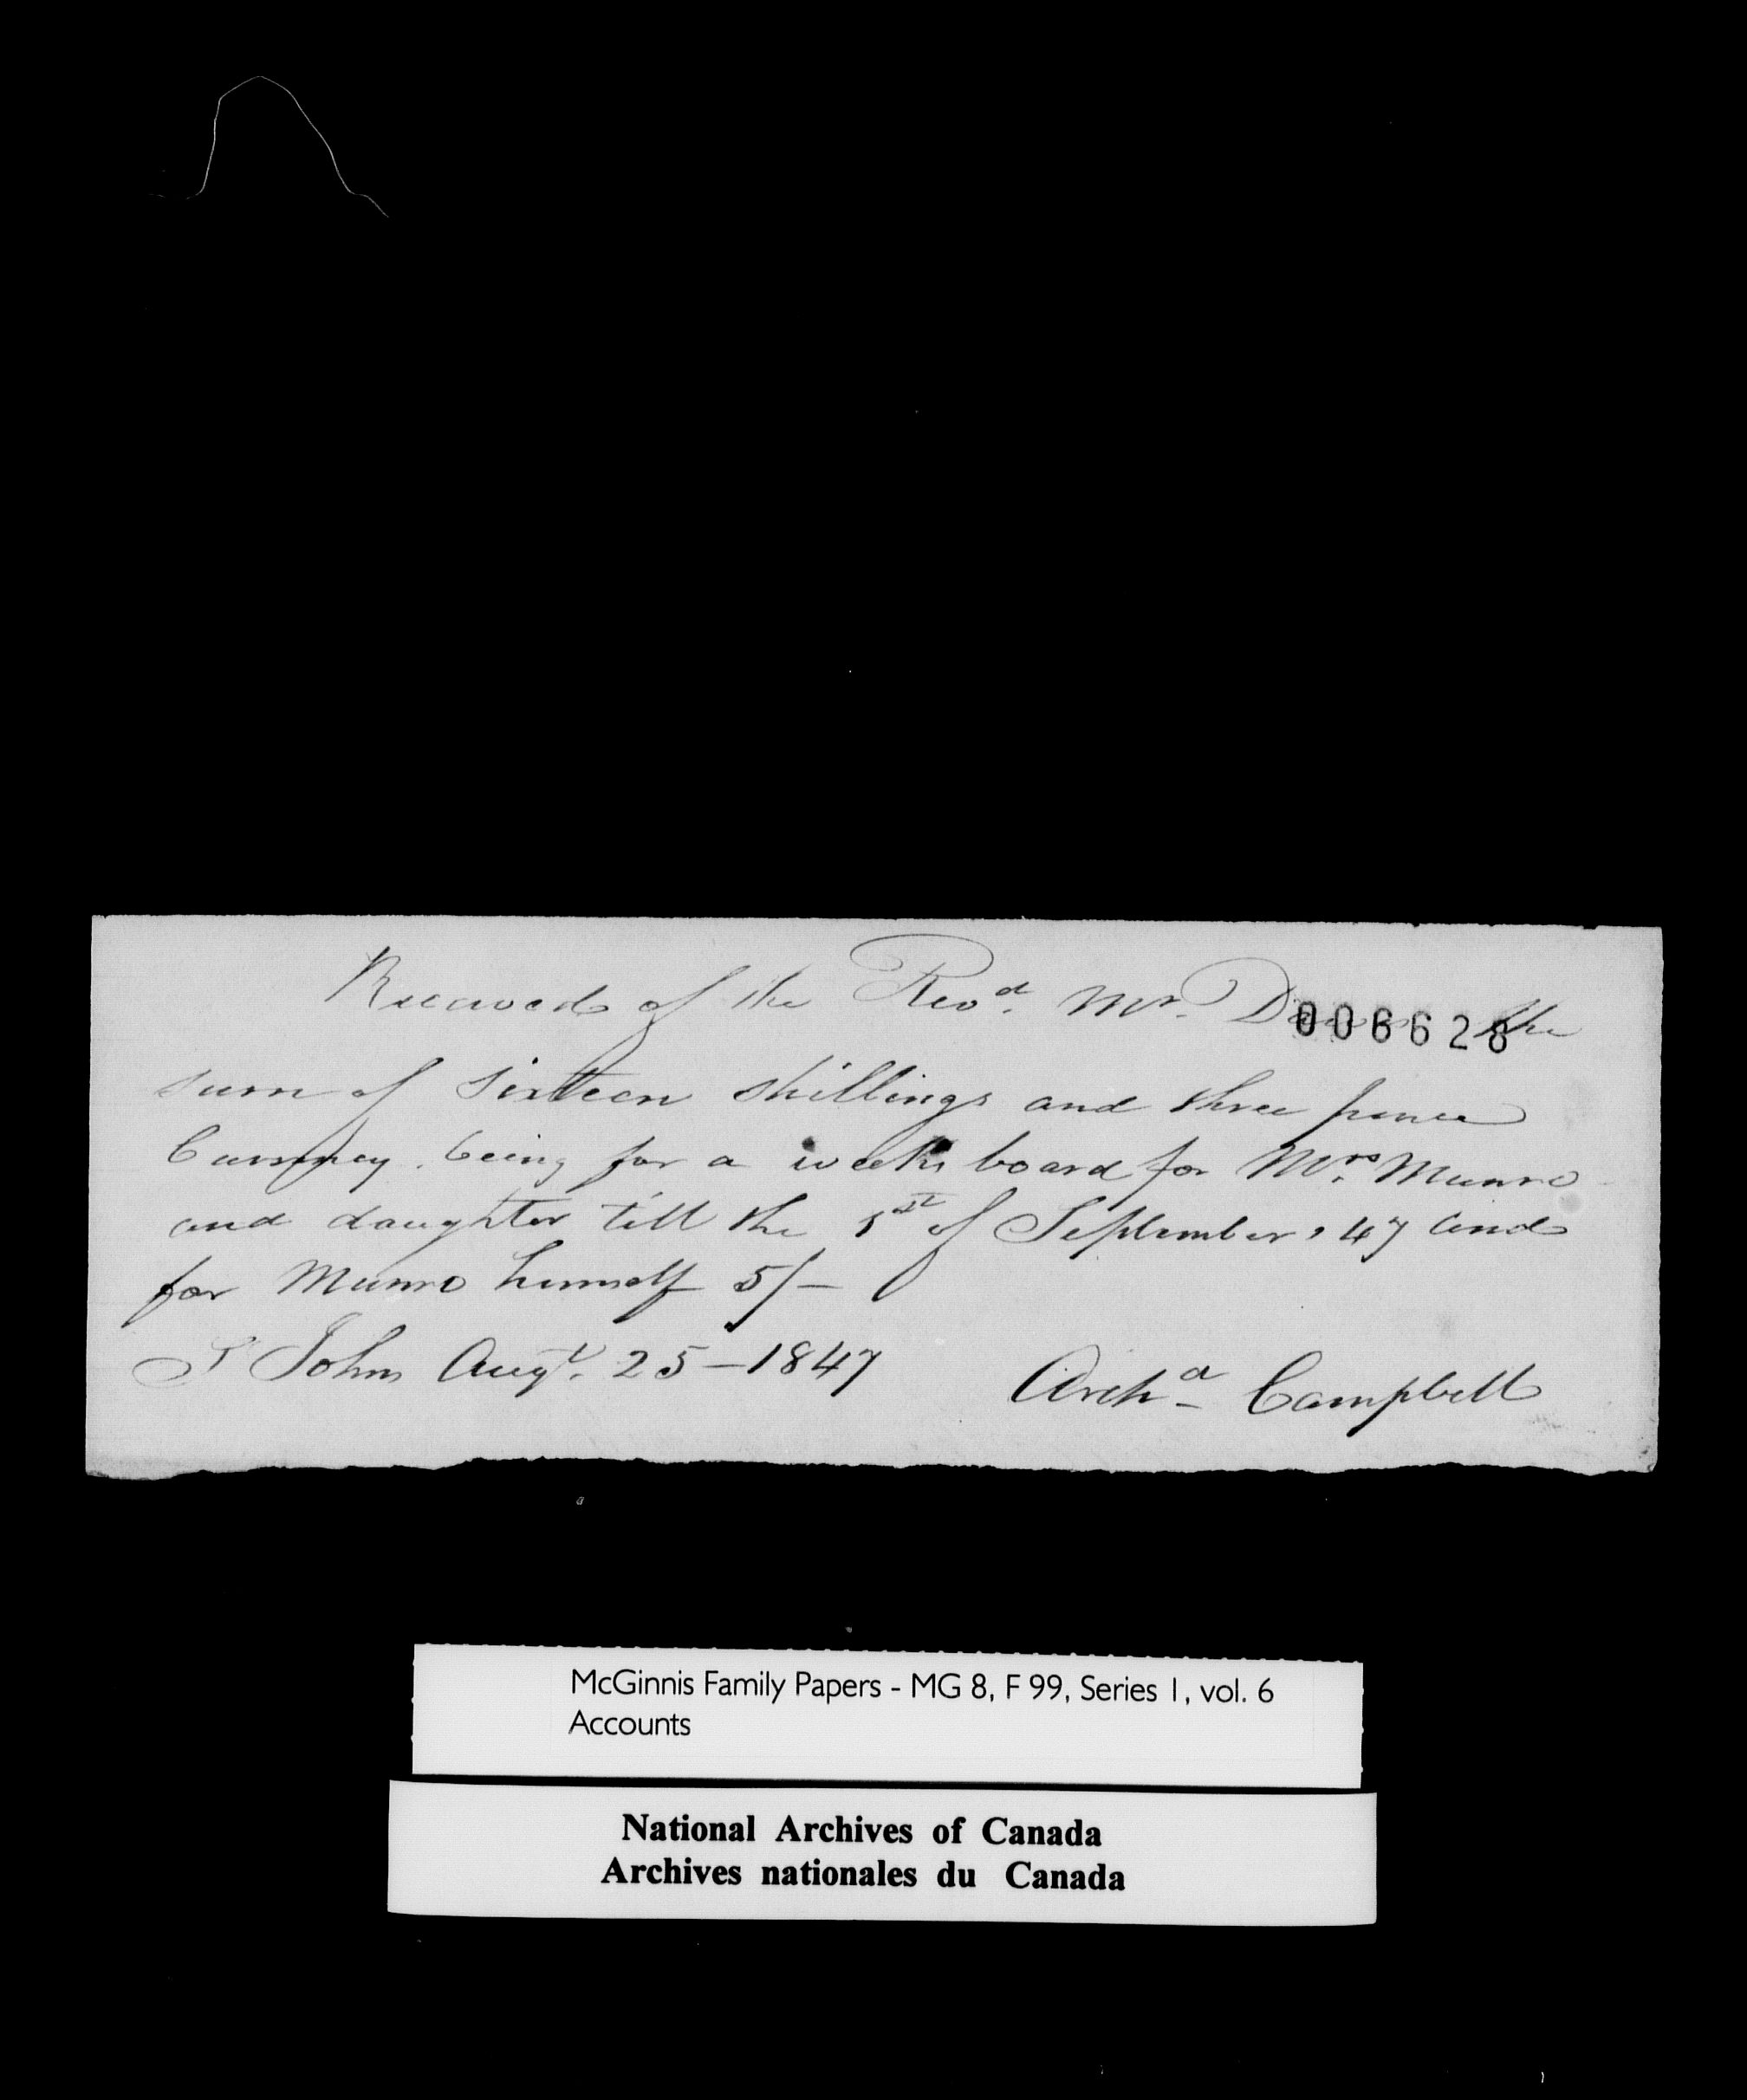 Received of the Revd. Mr. the
006628
sum of sixteen shillings and three pence
Currency. being for a weeks board for Mrs. Munro
and daughter till the 1st of September, 47 and
for Munro himself 5/-
St John Augt. 25 - 1847
Archd Campbell
McGinnis Family Papers - MG 8, F 99, Series 1, vol. 6
Accounts
National Archives of Canada
Archives nationales du Canada